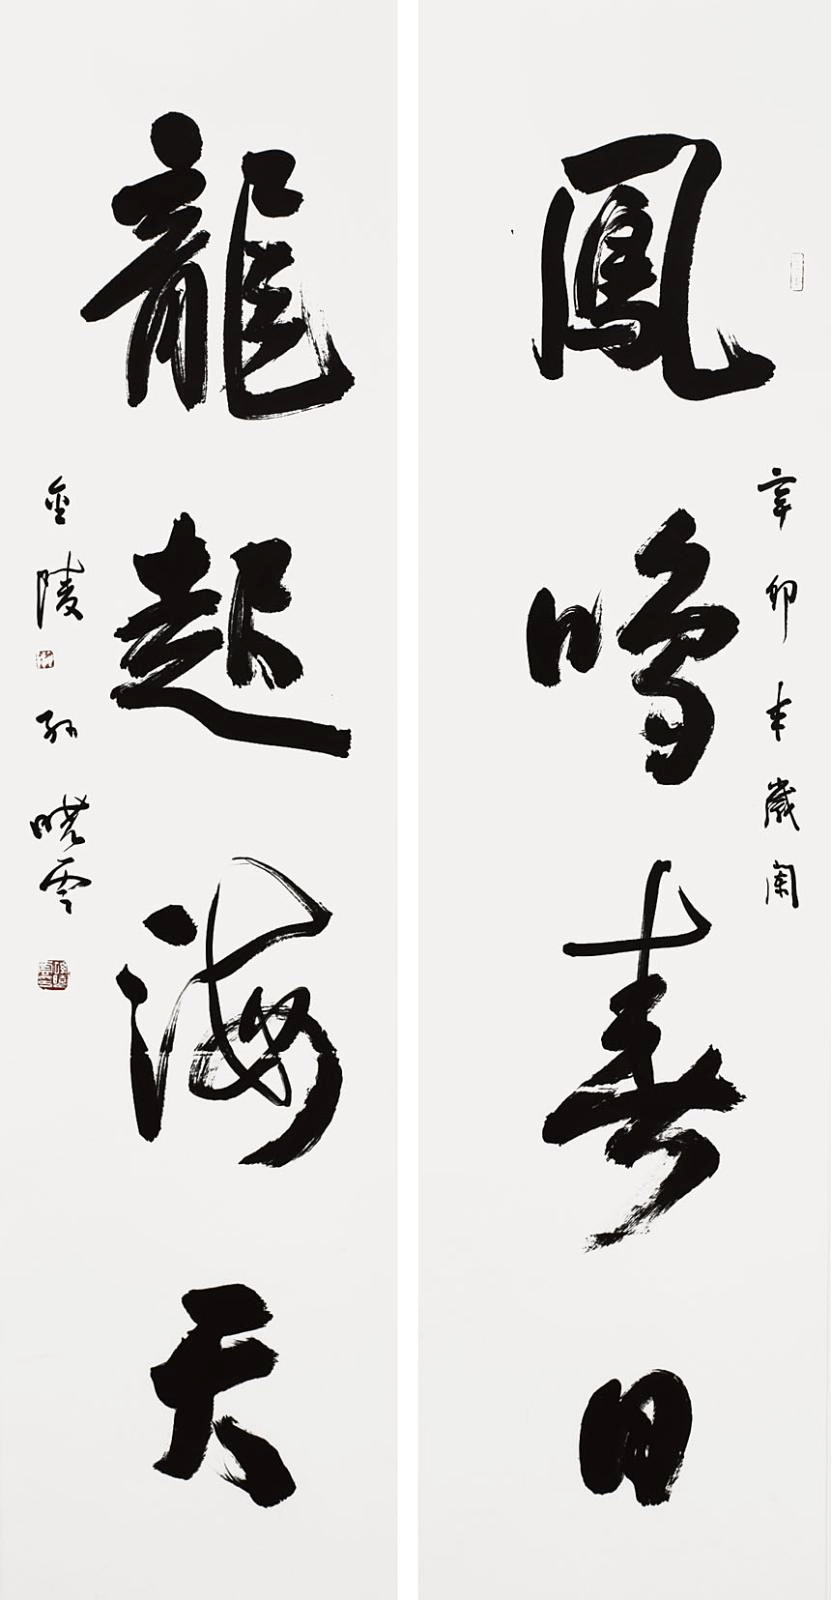 鳳鳴春日
辛卯年歲闌
龍起海天
金陵
孫曉雲